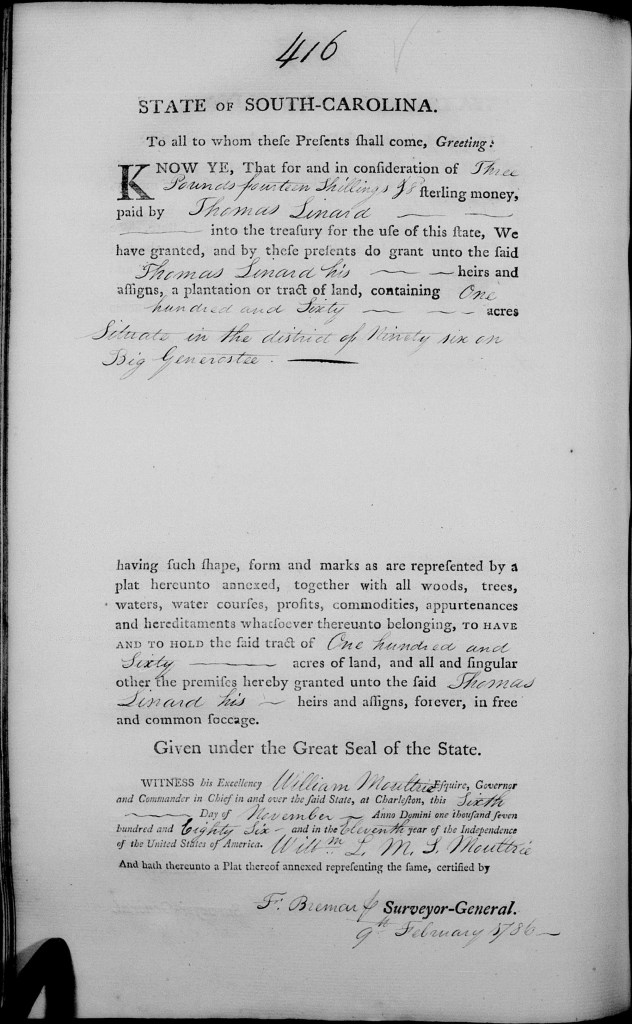 416
STATE OF SOUTH-CAROLINA.
To all to whom theſe Preſents ſhall come, Greeting:
KNOW YE, That for and in conſideration of Three
Pounds fourteen Shillings & 8 ſterling money,
paid by Thomas Linard
into the treaſury for the uſe of this ſtate, We
have granted, and by theſe preſents do grant unto the ſaid
Thomas Linard his heirs and
aſſigns, a plantation or tract of land, containing One
hundred and Sixty acres
Situate in the district of Ninety six on
Big Generostee.
having ſuch ſhape, form and marks as are repreſented by a
plat hereunto annexed, together with all woods, trees,
waters, water courſes, profits, commodities, appurtenances
and hereditaments whatſoever thereunto belonging, TO HAVE
AND TO HOLD the ſaid tract of One hundred and
Sixty acres of land, and all and ſingular
other the premiſes hereby granted unto the ſaid Thomas
Linard his heirs and aſſigns, forever, in free
and common ſoccage.
Given under the Great Seal of the State.
WITNESS his Excellency William Moultrie Eſquire, Governor
and Commander in Chief in and over the ſaid State, at Charleſton, this Sixth
Day of November Anno Domini one thouſand ſeven
hundred and Eighty Six and in the Eleventh year of the Independence
of the United States of America. Willm L. M. S. Moultrie
And hath thereunto a Plat thereof annexed repreſenting the ſame, certified by
Fs. Bremar Surveyor-General.
9th February 1786